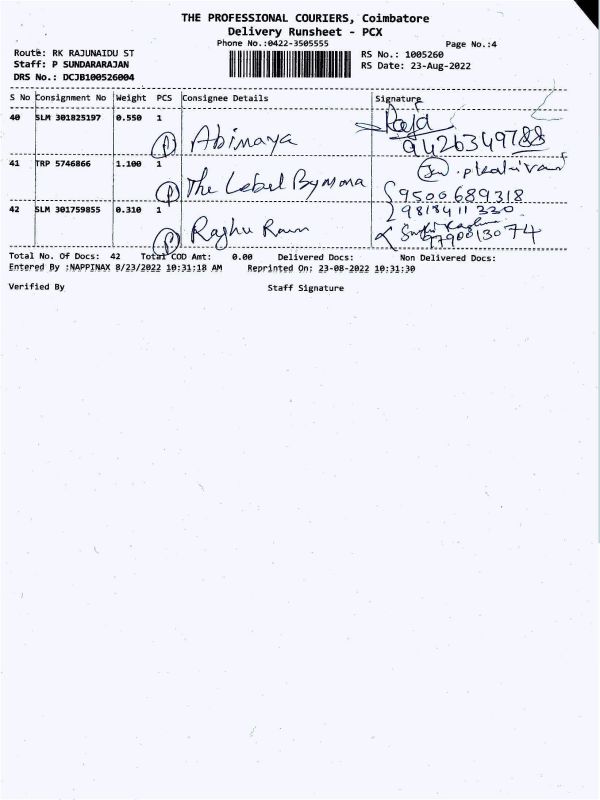 THE PROFESSIONAL COURIERS, Coimbatore
Delivery Runsheet - PCX
Phone No.:0422-3505555
Page No.:4
Route: RK RAJUNAIDU ST
RS No.: 1005260
Staff: P SUNDARARAJAN
RS Date: 23-Aug-2022
DRS No.: DCJB100526004
S No Consignment No Weight PCS Consignee Details Signature
40 SLM 301825197 0.550 1
P Abinaya Raja
9426349788
41 TRP 5746866 1.100 1
P The Label By Mona
9500689318
42 SLM 301759855 0.310 1 9818411330
P Raghu Ram
9790013074
Total No. Of Docs: 42 Total COD Amt: 0.00 Delivered Docs: Non Delivered Docs:
Entered By :NAPPINAX 8/23/2022 10:31:18 AM Reprinted On: 23-08-2022 10:31:30
Verified By Staff Signature